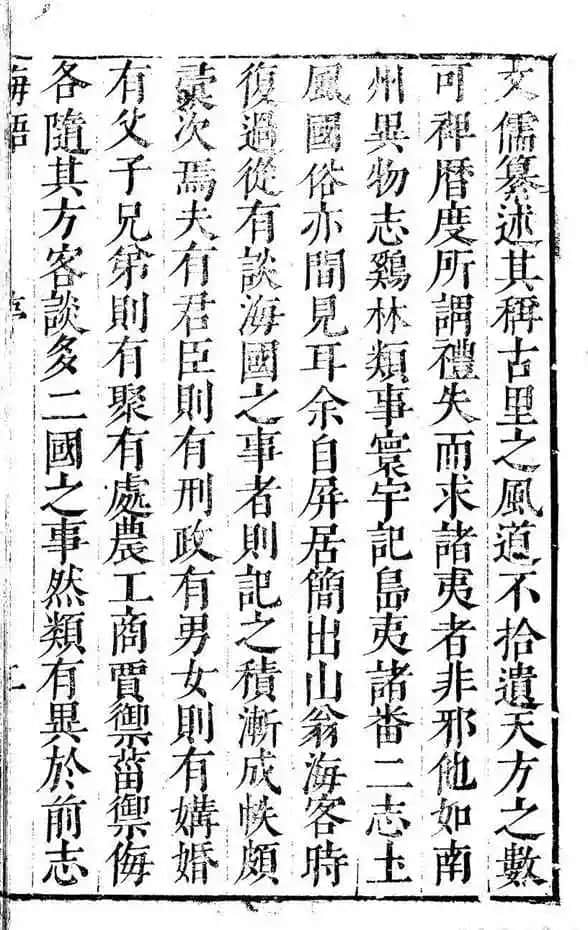 文儒纂述其稱古里之風道不拾遺天方之數
可裨曆度所謂禮失而求諸夷者非邪他如南
州異物志鷄林類事寰宇記島夷諸番二志土
風國俗亦間見耳余自屏居簡出山翁海客時
復過從有談海國之事者則記之積漸成帙頗
彚次焉夫有君臣則有刑政有男女則有媾婚
有父子兄弟則有聚有處農工商賈禦菑禦侮
各隨其方客談多二國之事然類有異於前志
海語 序 二